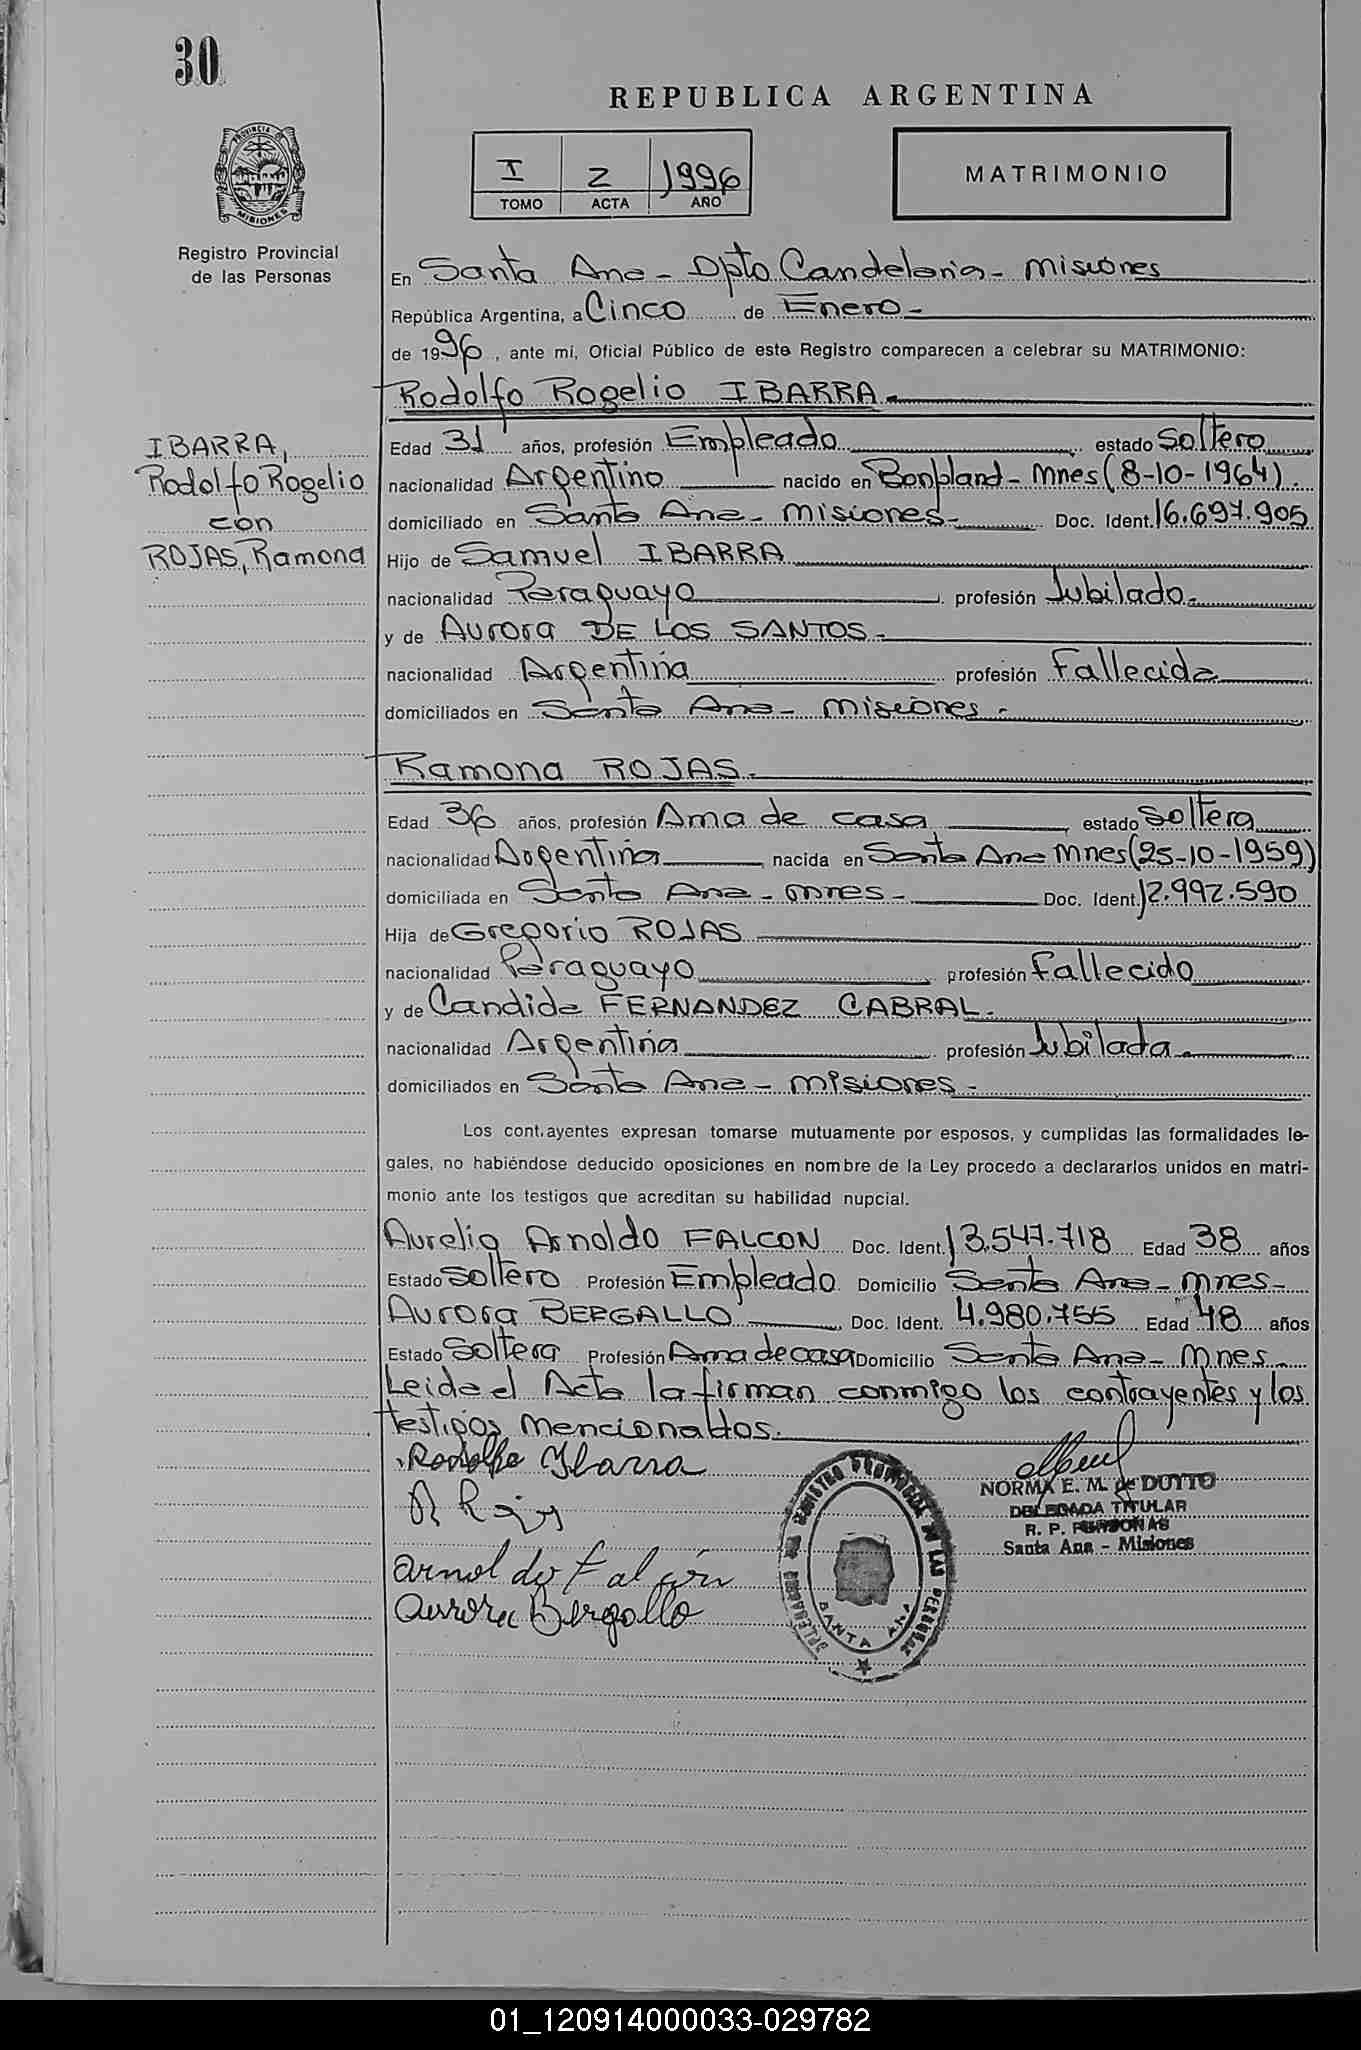 30
REPUBLICA ARGENTINA
PROVINCIA DE
MISIONES
I 2 1996
TOMO ACTA AÑO
MATRIMONIO
Registro Provincial
de las Personas
En Santa Ana - Dpto Candelaria - Misiones
República Argentina, a Cinco de Enero -
de 1996, ante mí, Oficial Público de este Registro comparecen a celebrar su MATRIMONIO:
Rodolfo Rogelio IBARRA.
IBARRA,
Rodolfo Rogelio
con
ROJAS, Ramona
Edad 31 años, profesión Empleado estado Soltero
nacionalidad Argentino nacido en Bonpland - Mnes (8-10-1964).
domiciliado en Santa Ana - Misiones - Doc. Ident. 16.697.905
Hijo de Samuel IBARRA
nacionalidad Paraguayo profesión Jubilado.
y de Aurora DE LOS SANTOS.
nacionalidad Argentina profesión Fallecida
domiciliados en Santa Ana - Misiones.
Ramona ROJAS.
Edad 36 años, profesión Ama de casa estado Soltera
nacionalidad Argentina nacida en Santa Ana Mnes (25-10-1959)
domiciliada en Santa Ana - Mnes - Doc. Ident. 12.992.590
Hija de Gregorio ROJAS
nacionalidad Paraguayo profesión Fallecido
y de Candida FERNANDEZ CABRAL.
nacionalidad Argentina profesión Jubilada
domiciliados en Santa Ana - Misiones -
Los contrayentes expresan tomarse mutuamente por esposos, y cumplidas las formalidades le-
gales, no habiéndose deducido oposiciones en nombre de la Ley procedo a declararlos unidos en matri-
monio ante los testigos que acreditan su habilidad nupcial.
Aurelio Arnoldo FALCON Doc. Ident. 13.547.718 Edad 38 años
Estado Soltero Profesión Empleado Domicilio Santa Ana - Mnes -
Aurora BERGALLO Doc. Ident. 4.980.755 Edad 48 años
Estado Soltera Profesión Ama de casa Domicilio Santa Ana - Mnes.
Leida el Acta la firman conmigo los contrayentes y los
testigos mencionados.
Rodolfo Ibarra
R Rojas
arnoldo Falcón
Aurora Bergallo
DELEGACION DEL REGISTRO PROVINCIAL DE LAS PERSONAS
SANTA ANA
NORMA E. M. de DUTTO
DELEGADA TITULAR
R. P. PERSONAS
Santa Ana - Misiones
01_120914000033-029782